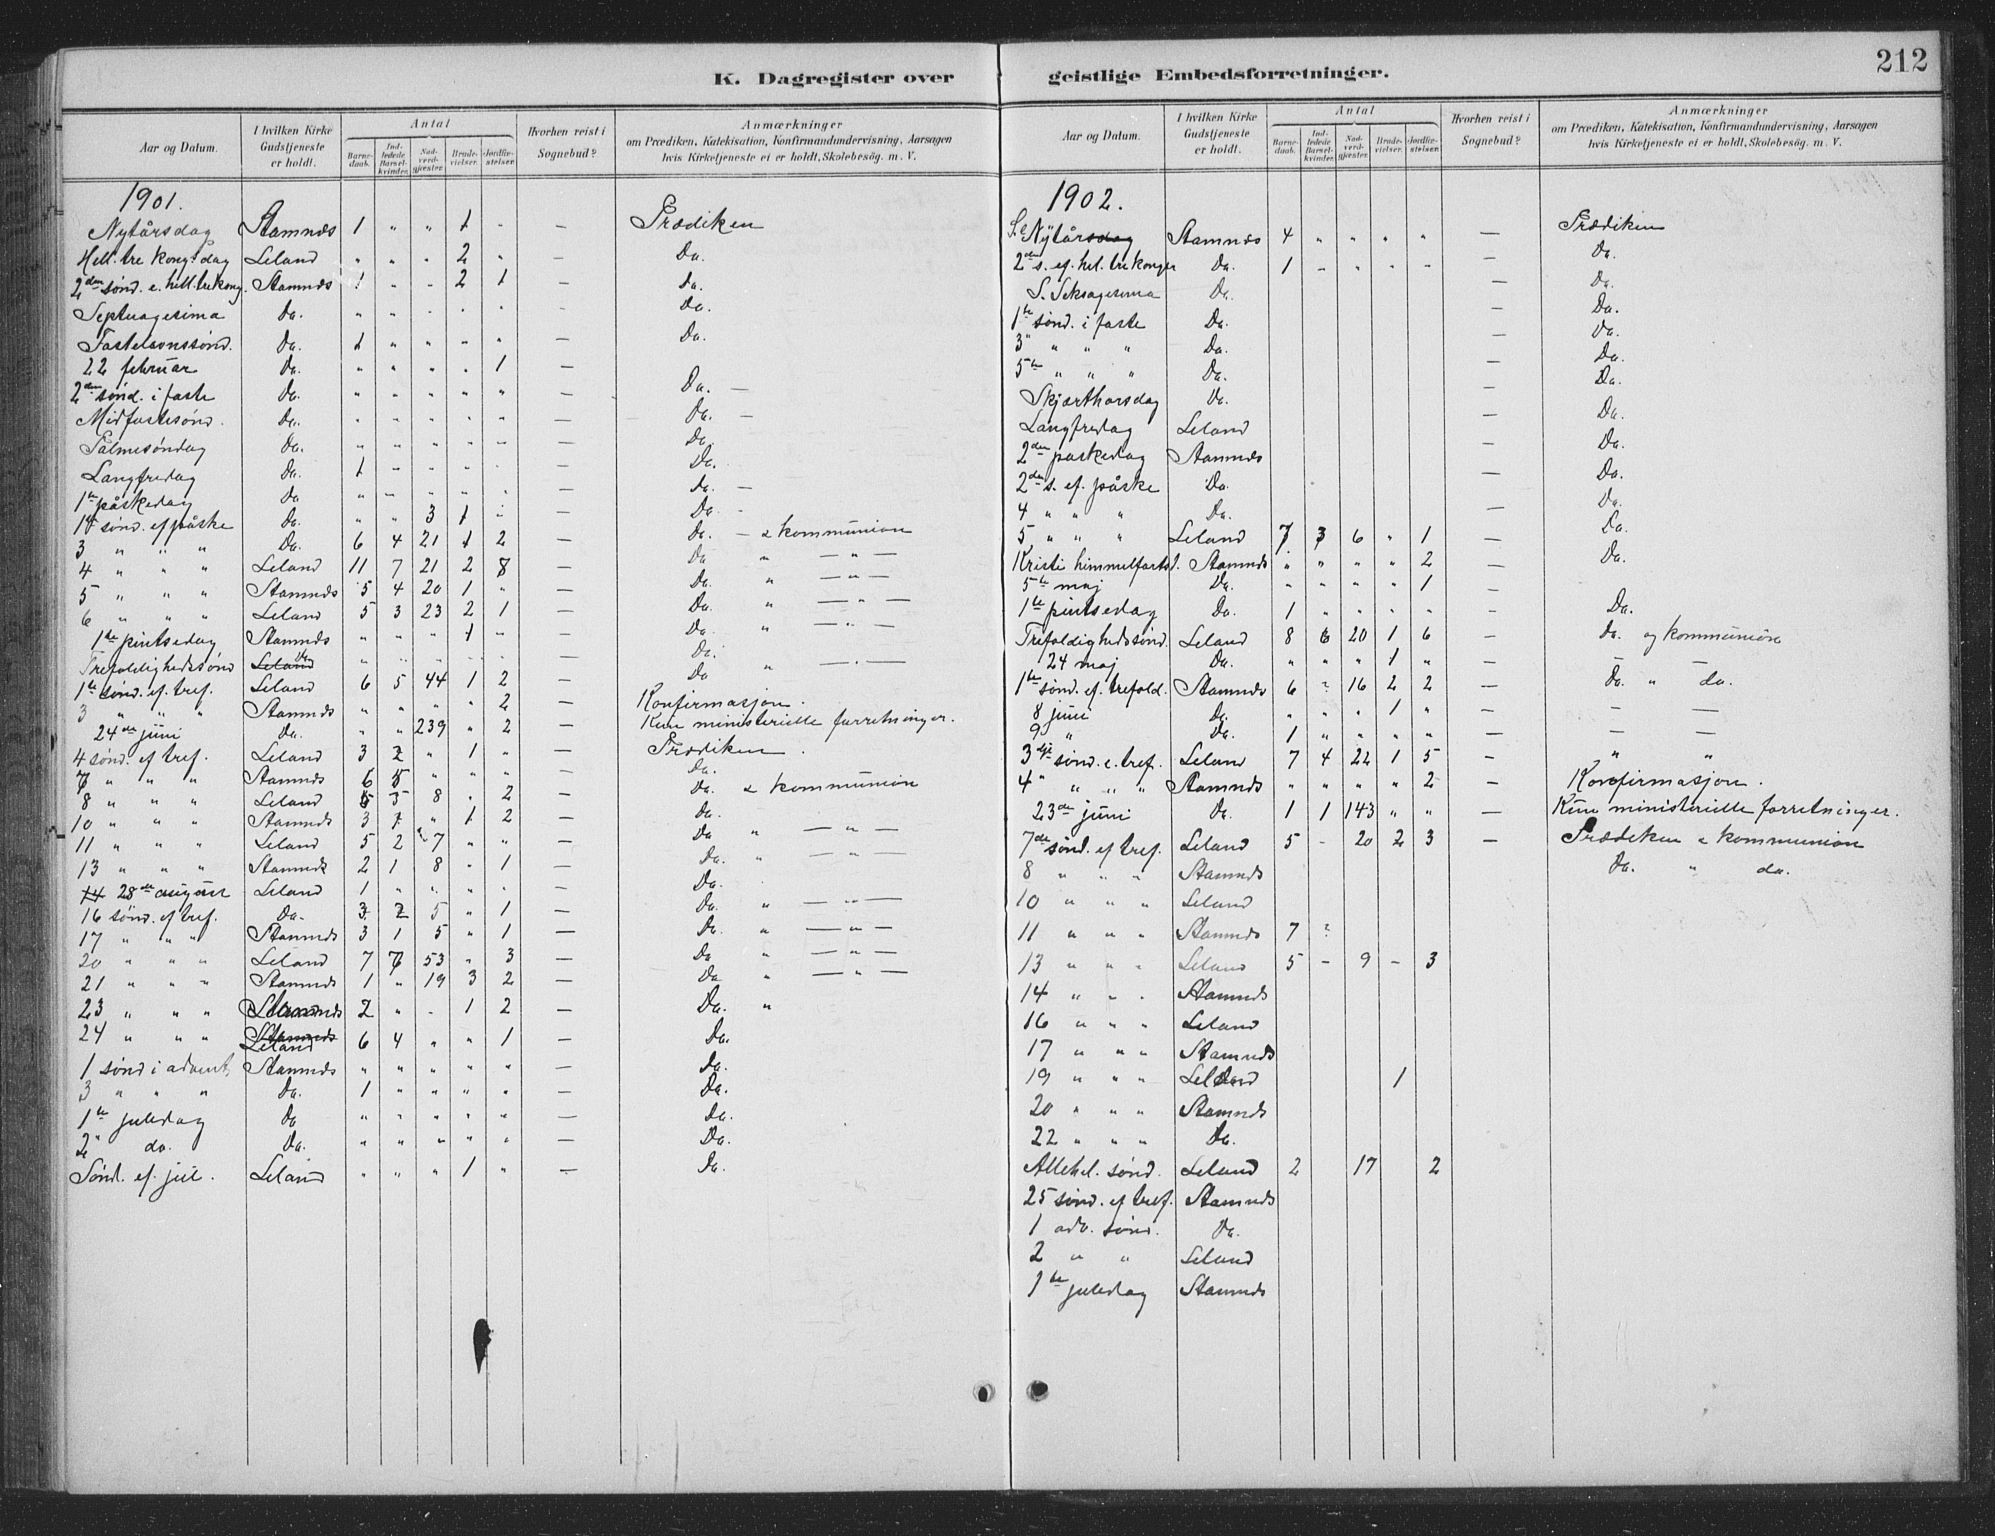 K. Dagregister over
Aar og Datum. I hvilken Kirke Gudstjeneste er holdt. Antal Barne-daab. Ind-ledede Barsel-kvinder. Nad-verd-gjæster. Brude-vielser. Jordfæ-stelser. Hvorhen reist i Sognebud? Anmærkninger om Prædiken, Katekisation, Konfirmandundervisning, Aarsagen hvis Kirketjeneste ei er holdt, Skolebesøg. m. V.
1901.
Nytårsdag Stamnæs 1 " " 1 " — Prædiken
Hell. tre kong. dag Leland " " " 2 " — Da.
2den sønd. e. hell. trekong. Stamnæs 1 " " 2 1 — Da.
Septuagesima Da. " " " " " — Da.
Fastelavnssønd. Da. 1 " " " " — Da.
22 februar Da. " " " " 1 —
2den sønd. i faste Da. " " " " " — Da. —
Midfastesønd. Da. " " " " " — Da. —
Palmesøndag Da. " " " " " — Da.
Langfredag Da. 1 " " " " — Da.
1te påskedag Da " " " " " — Da. —
1te sønd. ef påske Da. " " 3 1 " — Da. —
3 " " " Da. 6 4 21 1 2 — Da. — & kommunion
4 " " " Leland 11 7 21 2 8 — Da " — " —
5 " " " Stamnæs 5 4 20 1 " — Da. " — " —
6 " " " Leland 5 3 23 2 1 — Da. " — " —
1te pintsedag Stamnæs " " " 1 " — Da. " — " —
Trefoldighedssønd Leland Da " " " " " — Da.
1te sønd. ef. tref. Leland 6 5 44 1 2 — Da " — " —
3 " " " Stamnæs " " " " 2 — Konfirmasjon.
24de juni Da. " " 239 " 2 — Kun ministerielle forretninger.
4 sønd. ef tref. Leland 3 2 " 1 " — Prædiken.
7 " " " Stamnæs 6 5 " " " — Da.
8 " " " Leland 5 3 8 " 2 — Da. & kommunion
10 " " " Stamnæs 3 1 " 1 2 — Da.
11 " " " Leland 5 2 7 " " — Da " — " —
13 " " " Stamnæs 2 1 8 " 1 — Da. " — " —
14 28de august Leland 1 " " " " — Da.
16 sønd. ef tref. Da. 3 2 5 " 1 — Da. " — " —
17 " " " Stamnæs 3 1 5 " 1 — Da. " — " —
20 " " " Leland 7 6 53 " 3 — Da " — " —
21 " " " Stamnæs 1 " 19 3 2 — Da " — " —
23 " " " Stamnæs 2 " " 1 2 — Da. "
24 " " " Stamnæs Leland 6 4 " " 1 — Da.
1 sønd i advent, Stamnæs " " " " " — Da.
3 " " " Da. 1 " " " " — Da.
1te juledag Da " " " " " — Da.
2" da. Da. " " " " " — Da.
Sønd. ef. jul. Leland " " " 1 " — Da.
212
geistlige Embedsforretninger.
Aar og Datum. I hvilken Kirke Gudstjeneste er holdt. Antal Barne-daab. Ind-ledede Barsel-kvinder. Nad-verd-gjæster. Brude-vielser. Jordfæ-stelser. Hvorhen reist i Sognebud? Anmærkninger om Prædiken, Katekisation, Konfirmandundervisning, Aarsagen hvis Kirketjeneste ei er holdt, Skolebesøg. m. V.
1902.
S. e Nytårsdag Stamnæs 4 " " " " — Prædiken
2den s. ef. hel. tre konger Da. 1 " " " " — Da.
S. Seksagesima Da. — Da.
1te sønd. i faste Da. — Da.
3" " " " Da. — Da.
5te " " " Da. — Da.
Skjærthorsdag Da. — Da.
Langfredag Leland — Da.
2den paskedag Stamnæs — Da.
2den s. ef. påske Da. — Da.
4 " " " Da. — Da.
5 " " " Leland 7 3 6 " 1 — Da.
Kristi himmelfartsd. Stamnæs " " " " 2 — Da.
5te maj Da. " " " " 1 —
1te pintsedag Da. 1 " " " " — Da.
Trefoldighedssønd. Leland 8 6 20 1 6 — Da. og kommunion
24 maj Da. " " " 1 " — — —
1te sønd. ef. trefold. Stamnæs 6 ? 16 2 2 — Da. " da.
8 juni Da. " " " 1 " — — —
9 " Da. 1 " " " " — — —
3dje sønd. e. tref. Leland 7 4 22 1 5 — " "
4 " " " " Stamnæs " " " " 2 — Konfirmasjon.
23de juni Da. 1 1 143 " " — Kun ministerielle forretninger.
7de sønd. ef tref. Leland 5 — 20 2 3 — Prædiken & kommunion
8 " " " Stamnæs Da. " da.
10 " " " Leland
11 " " " Stamnæs 7 ?
13 " " " Leland 5 — 9 — 3
14 " " " Stamnæs
16 " " " Leland
17 " " " Stamnæs
19 " " " Leland 1
20 " " " Stamnæs
22 " " " Da.
Allehel. sønd. Leland 2 17 2
25 sønd. ef tref. Stamnæs
1 adv. sønd. Da.
2 " " Leland
1te juledag Stamnæs